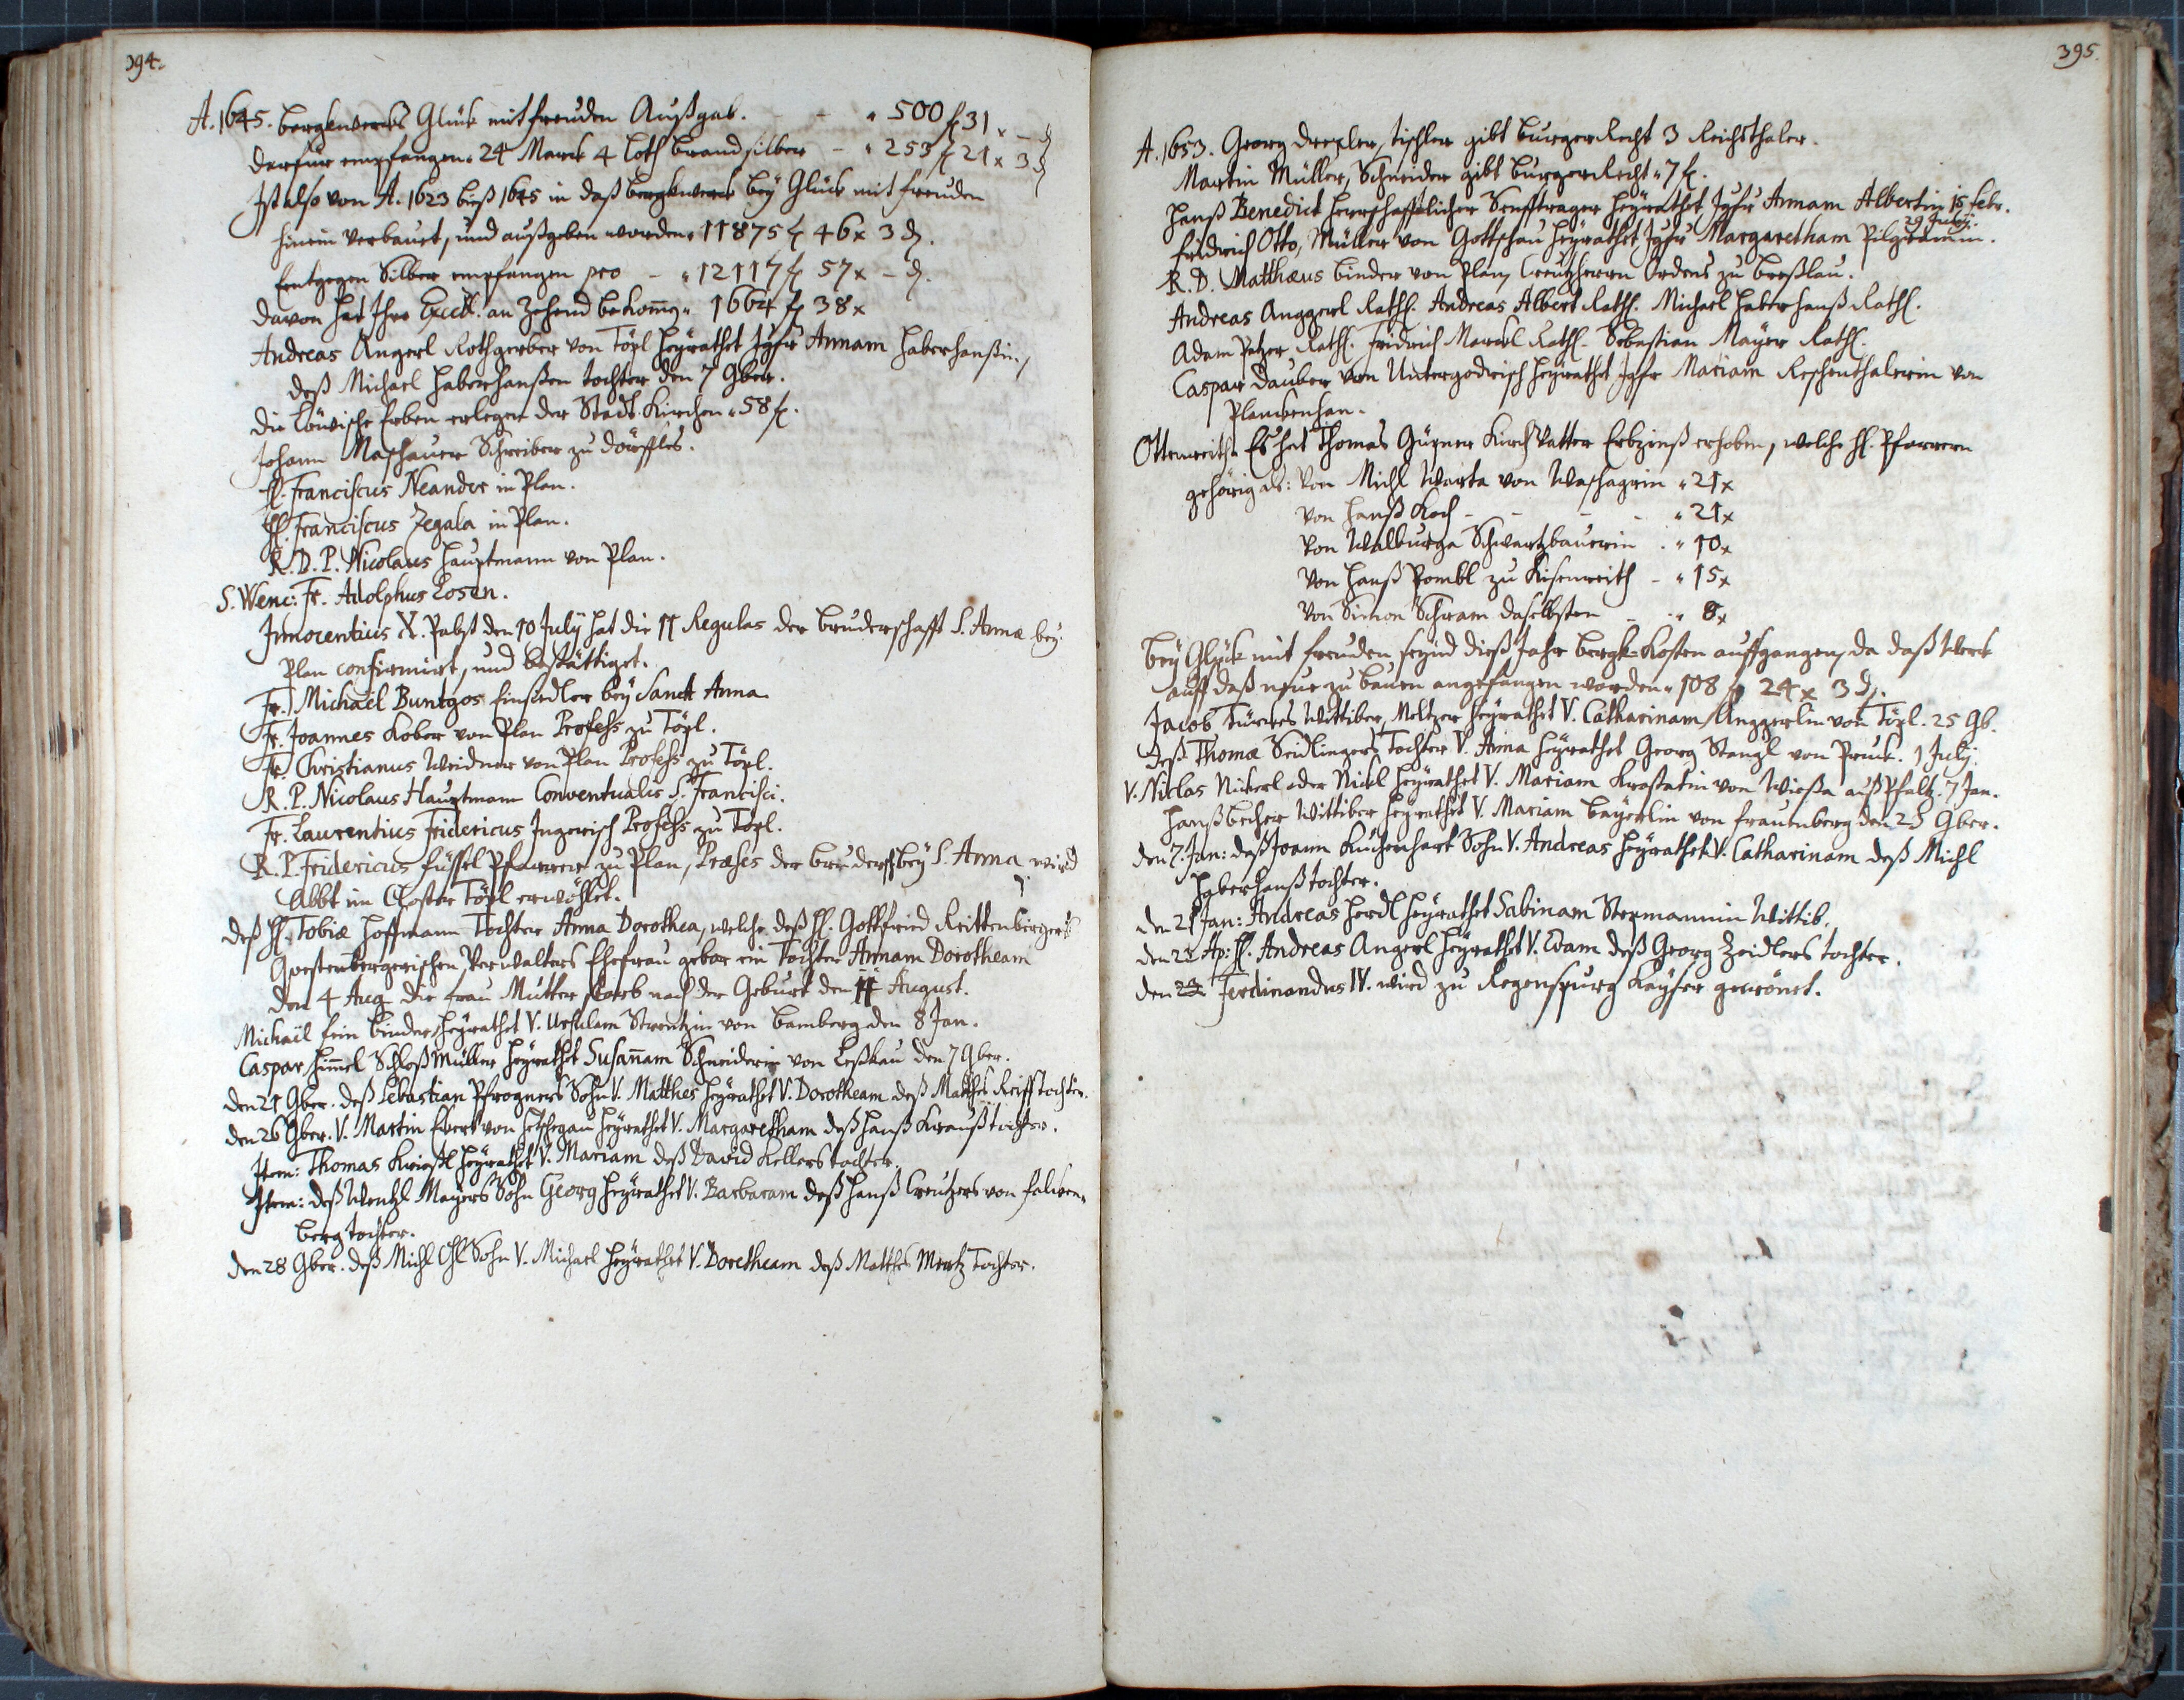 394.
A. 1645. Bergkwercks Glück mit freuden Außgab. - - " 500 f 31 x - ₰
Darfür empfangen " 24 Marck 4 Loth Brandsilber - " 253 f 21 x 3 ₰
Ist also von A. 1623 biß 1645 in daß Bergkwerck bey Glück mit freuden
hinein verbauet, und außgeben worden " 11875 f 46 x 3 ₰.
Entgegen Silber empfangen pro - " 12117 f 57 x - ₰.
Davon hat Ihre Excell. an Zehend bekom̄en " 1664 f 38 x
Andreas Angerl Rothgerber von Töpl heyrathet Jgfr Annam Haberhanßin,
deß Michael Haberhanßen tochter den 7 9ber.
Die Löwische Erben erlegen der Stadt Kirchen " 58 f.
Johann Maschauer Schreiber zu Dörffles.
H. Franciscus Neander in Plan.
H. Franciscus Zegala in Plan.
R. D. P. Nicolaus Hauptmann von Plan.
S. Wenc: Fr. Adolphus Losen.
Innocentius X. Pabst den 10 July hat die 11 Regulas der Bruderschafft S. Annæ bey
Plan confirmirt, und bestättiget.
Fr. Michaël Buntgos Einsidler bey Sanct Anna
Fr. Joannes Kober von Plan Profess zu Töpl.
Fr. Christianus Weidner von Plan Profess zu Töpl.
R. P. Nicolaus Hauptmann Conventualis S. Francisci.
Fr. Laurentius Fridericus Ingerisch Profess zu Töpl.
R. P. Fridericus Füssel Pfarrer zu Plan, Præses der Brudersch. bey S. Anna wird
Abbt im Closter Töpl erwöhlet.
Deß H. Tobiæ Hoffmann Tochter Anna Dorothea, welche deß H. Gottfried Reittenbergers
Verwalters Ehefrau gebar ein Tochter Annam Dorotheam
den 4 Aug. die Frau Mutter starb nach der Geburt den 11 August.
Michaël Fein Binder heyrathet V. Ursulam Strentzin von Bamberg den 8 Jan.
Caspar Him̄el Schloß Müller heyrathet Susan̄am Schneiderin von Leßkau den 7 9ber.
Den 21 9ber. deß Sebastian Pfrogners Sohn V. Matthes heyrathet V. Dorotheam deß Matthes Reiff tochter.
Den 26 9ber. V. Martin Ebert von heyrathet V. Margaretham deß Hanß Krauß tochter.
Item: Thomas Kriestl heyrathet V. Mariam deß David Kellers tochter.
Item: deß Wentzl Mayers Sohn Georg heyrathet V. Barbaram deß Hanß Creutzers von Falken-
berg tochter.
Den 28 9ber. deß Michl Ohl Sohn V. Michael heyrathet V. Dorotheam deß Matthes Mertz Tochter.
395.
A. 1653. Georg Drexler, Tischler gibt BurgerRecht 3 Reichsthaler.
Martin Müller, Schneider gibt BurgerRecht " 7 f.
Hanß Benedict Herrschafftlicher Senfftrager heyrathet Jgfr Annam Albertin 15 Febr.
29 July.
Fridrich Otto, Müller von Gottschau heyrathet Jgfr Margaretham Pilgramin.
R. D. Matthæus Binder von Plan, Creutzherrn Ordens zu Breßlau.
Andreas Anggerl Rathh. Andreas Albert Rathh. Michael Haberhanß Rathh.
Adam Petzer Rathh. Fridrich Marckl Rathh. Sebastian Mayer Rathh.
Caspar Dauber von Untergodrisch heyrathet Jgfr Mariam Reschenthalerin von
Planckenhan.
Ottenreith. Es hat Thomas Güxner Kirch Vatter Erbzinß erhoben, welche H. Pfarrern
gehörig als: Von Michl Warta von Waschagrün " 21 x
Von Hanß Koch - - - - " 21 x
Von Walburga Schwartzbauerin . " 10 x
Von Hanß Pombl zu Kisenreith - " 15 x
Von Simon Schram daselbsten - - " 8 x
Bey Glück mit freuden seynd dieß Jahr Bergk-Kosten auffgangen, da daß Werck
auff daß neue zu bauen angefangen worden " 108 f 24 x 3 ₰.
Jacob Türckes Wittiber, Meltzer heyrathet V. Catharinam Anggerlin von Töpl. 25 9b.
Deß Thomæ Seidlingers Tochter V. Anna heyrathet Georg Stangl von Pruck. 1 July.
V. Niclas Nickerl oder Nickl heyrathet V. Mariam Krostatin von Wießa auß Pfaltz. 7 Jan.
Hanß Becher Wittiber heyrathet V. Mariam Bayerlin von Frauenberg den 25 9ber.
Den 7. Jan: deß Joann Küchenhart Sohn V. Andreas heyrathet V. Catharinam deß Michl
Haberhanß tochter.
Den 21 Jan: Andreas Herdl heyrathet Sabinam Stepmannin Wittib.
Den 21 Ap: H. Andreas Angerl heyrathet V. Evam deß Georg Zeidlers tochter.
Den 24 Ferdinandus IV. wird zu Regenspurg Kayser gekrönet.